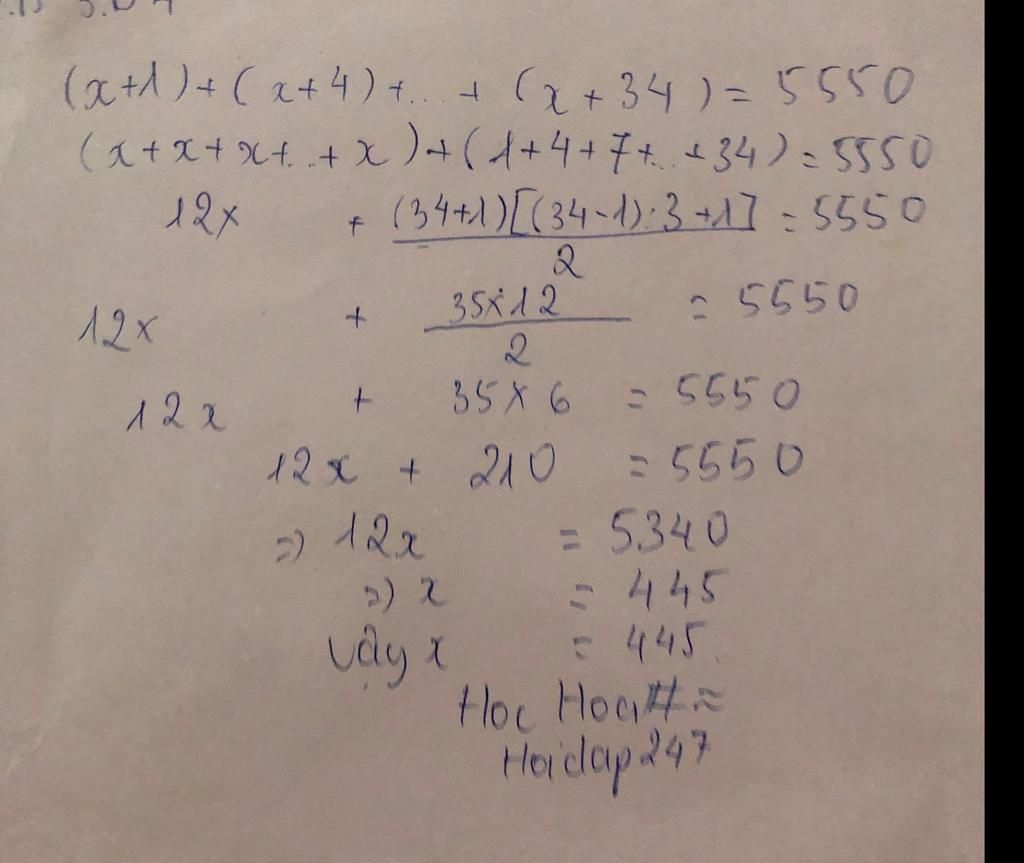 (x+1)+(x+4)+...+(x+34)=5550
(x+x+x+...+x)+(1+4+7+...+34)=5550
12x + (34+1)[(34-1):3+1] = 5550
2
12x + 35×12 = 5550
2
12x + 35×6 = 5550
12x + 210 = 5550
=) 12x = 5340
=) x = 445
Vậy x = 445.
Hoc Hoa#≈
Hoidap247